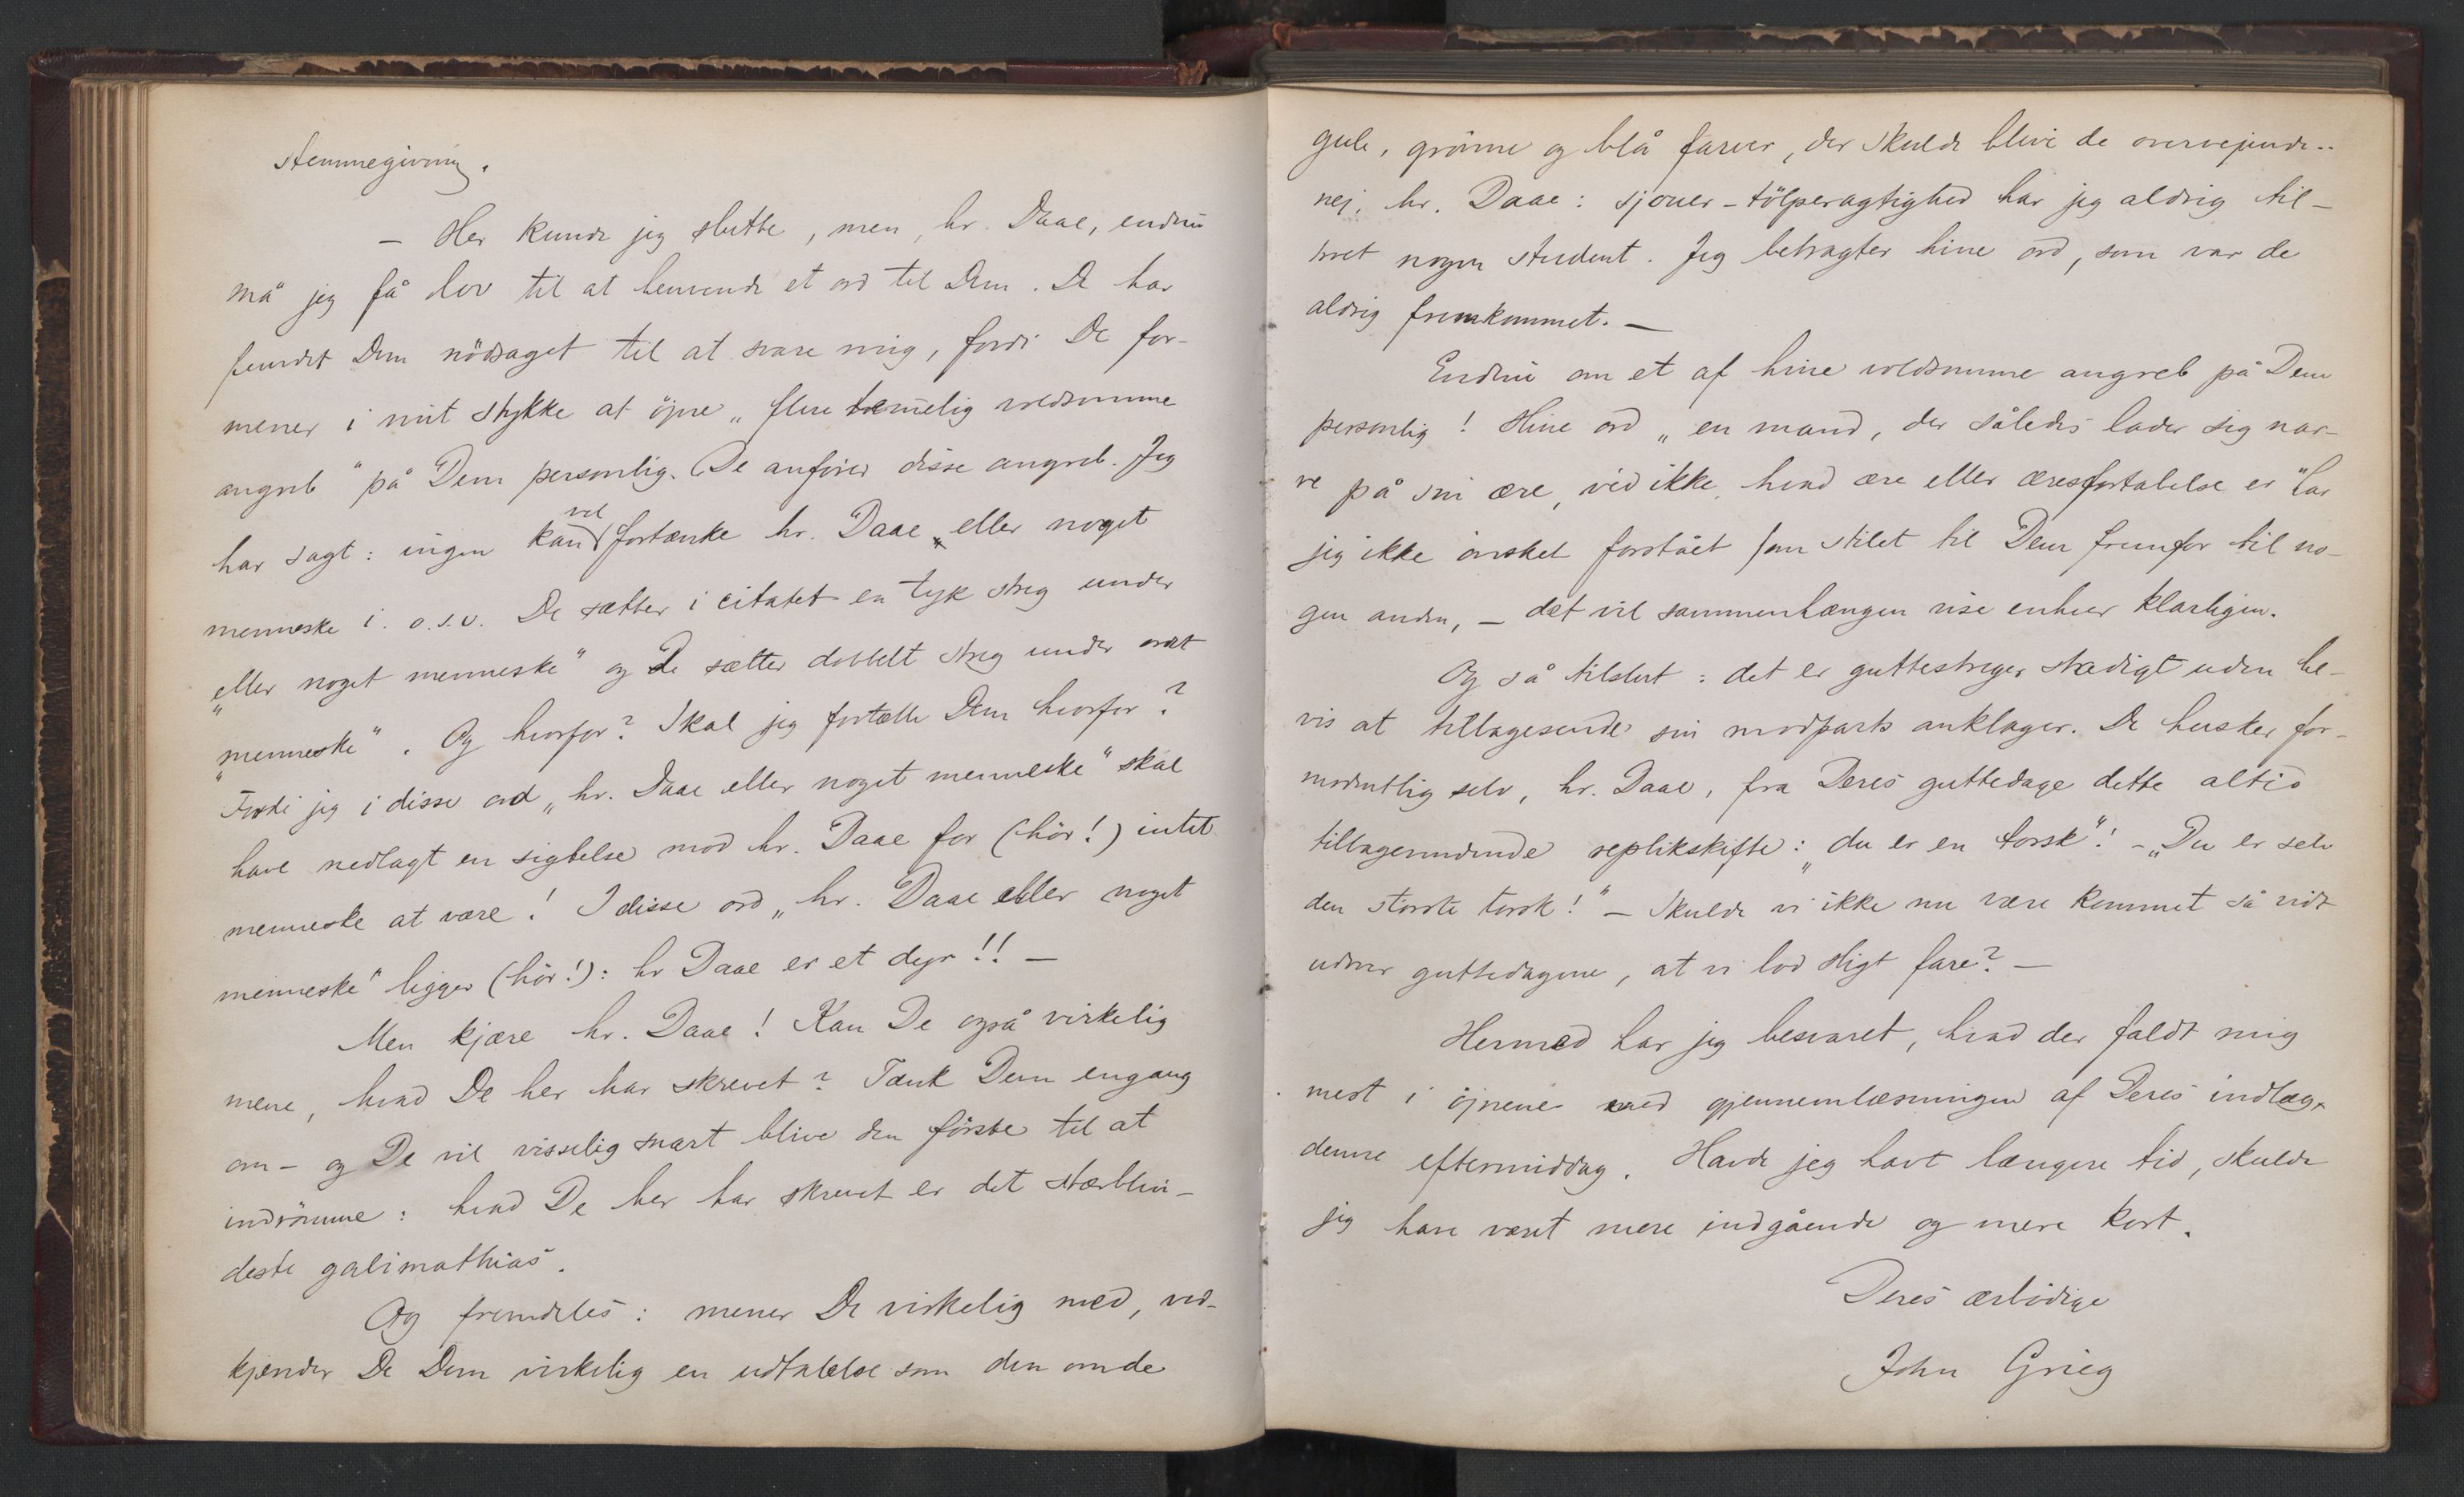 stemmegivning.
— Her kunde jeg slutte, men, hr. Daae, endnu
må jeg få lov til at henvende et ord til Dem. De har
fundet Dem nödsaget til at svare mig, fordi De for-
mener i mit stykke at öjne „flere temmelig voldsomme
angreb" på Dem personlig. De anförer disse angreb. Jeg
har sagt: ingen kan vel fortænke hr. Daae „eller noget
menneske i. o.s.v. De sætter i citatet en tyk streg under
„eller noget menneske" og De sætter dobbelt streg under ordet
„menneske". Og hvorfor? Skal jeg fortælle Dem hvorfor?
Fordi jeg i disse ord „hr. Daae eller noget menneske" skal
have nedlagt en sigtelse mod hr. Daae for (hör!) intet
menneske at være! I disse ord „hr. Daae eller noget
menneske" ligger (hör!): hr Daae er et dyr!! —
Men kjære hr. Daae! Kan De også virkelig
mene, hvad De her har skrevet? Tænk Dem engang
om — og De vil visselig snart blive den förste til at
indrömme: hvad De her har skrevet er det stærblin-
deste galimathias.
Og fremdeles: mener De virkelig med, ved-
kjender De Dem virkelig en udtalelse som den om de
gule, grönne og blå farver, der skulde blive de overvejende..
nej, hr. Daae: sjouer-tölperagtighed har jeg aldrig til-
troet nogen student. Jeg betragter hine ord, som var de
aldrig fremkommet. —
Endnu om et af hine voldsomme angreb på Dem
personlig! Hine ord „en mand, der således lader sig nar-
re på sin ære, ved ikke, hvad ære eller æresfortabelse er" har
jeg ikke önsket forstået som stilet til Dem fremfor til no-
gen anden, — det vil sammenhængen vise enhver klarligen.
Og så tilslut: det er guttestreger stadigt uden be-
vis at tilbagesende sin modparts anklager. De husker for-
modentlig selv, hr. Daae, fra Deres guttedage dette altid
tilbagevendende replikskifte: „du er en torsk"! — „Du er selv
den störste torsk!" — Skulde vi ikke nu være kommet så vidt
udover guttedagene, at vi lod sligt fare? —
Hermed har jeg besvaret, hvad der faldt mig
mest i öjnene ved gjennemlæsningen af Deres indlæg
denne eftermiddag. Havde jeg havt længere tid, skulde
jeg have været mere indgående og mere kort.
Deres ærbödige
John Grieg